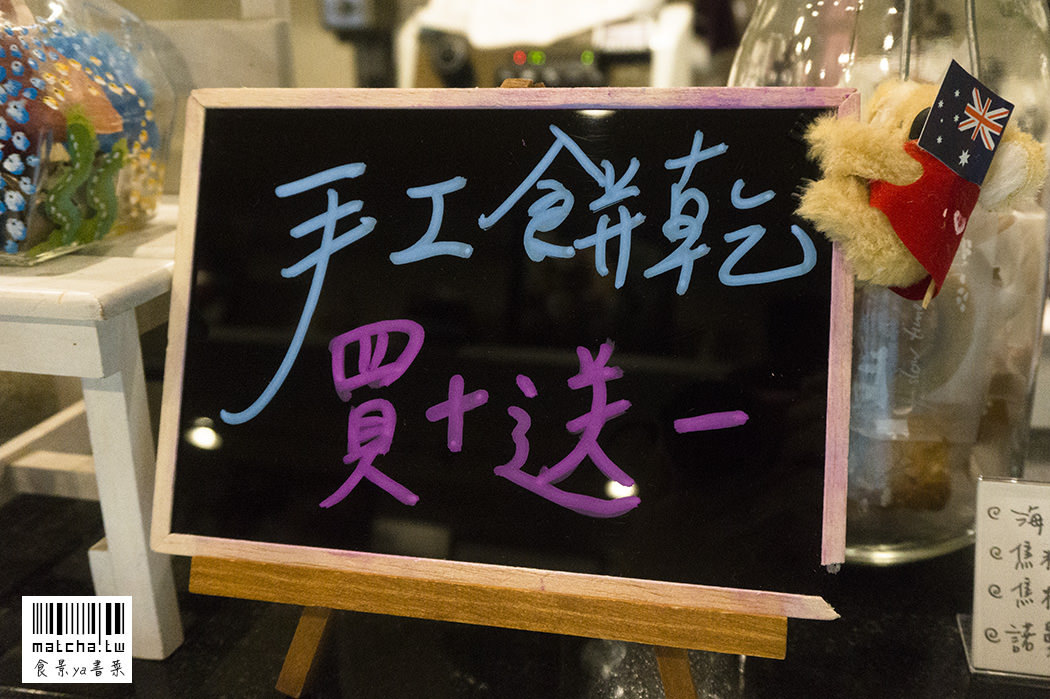 手工餅乾
買十送一
slow
海
焦
焦
諾
matcha.tw
食景ya書菜